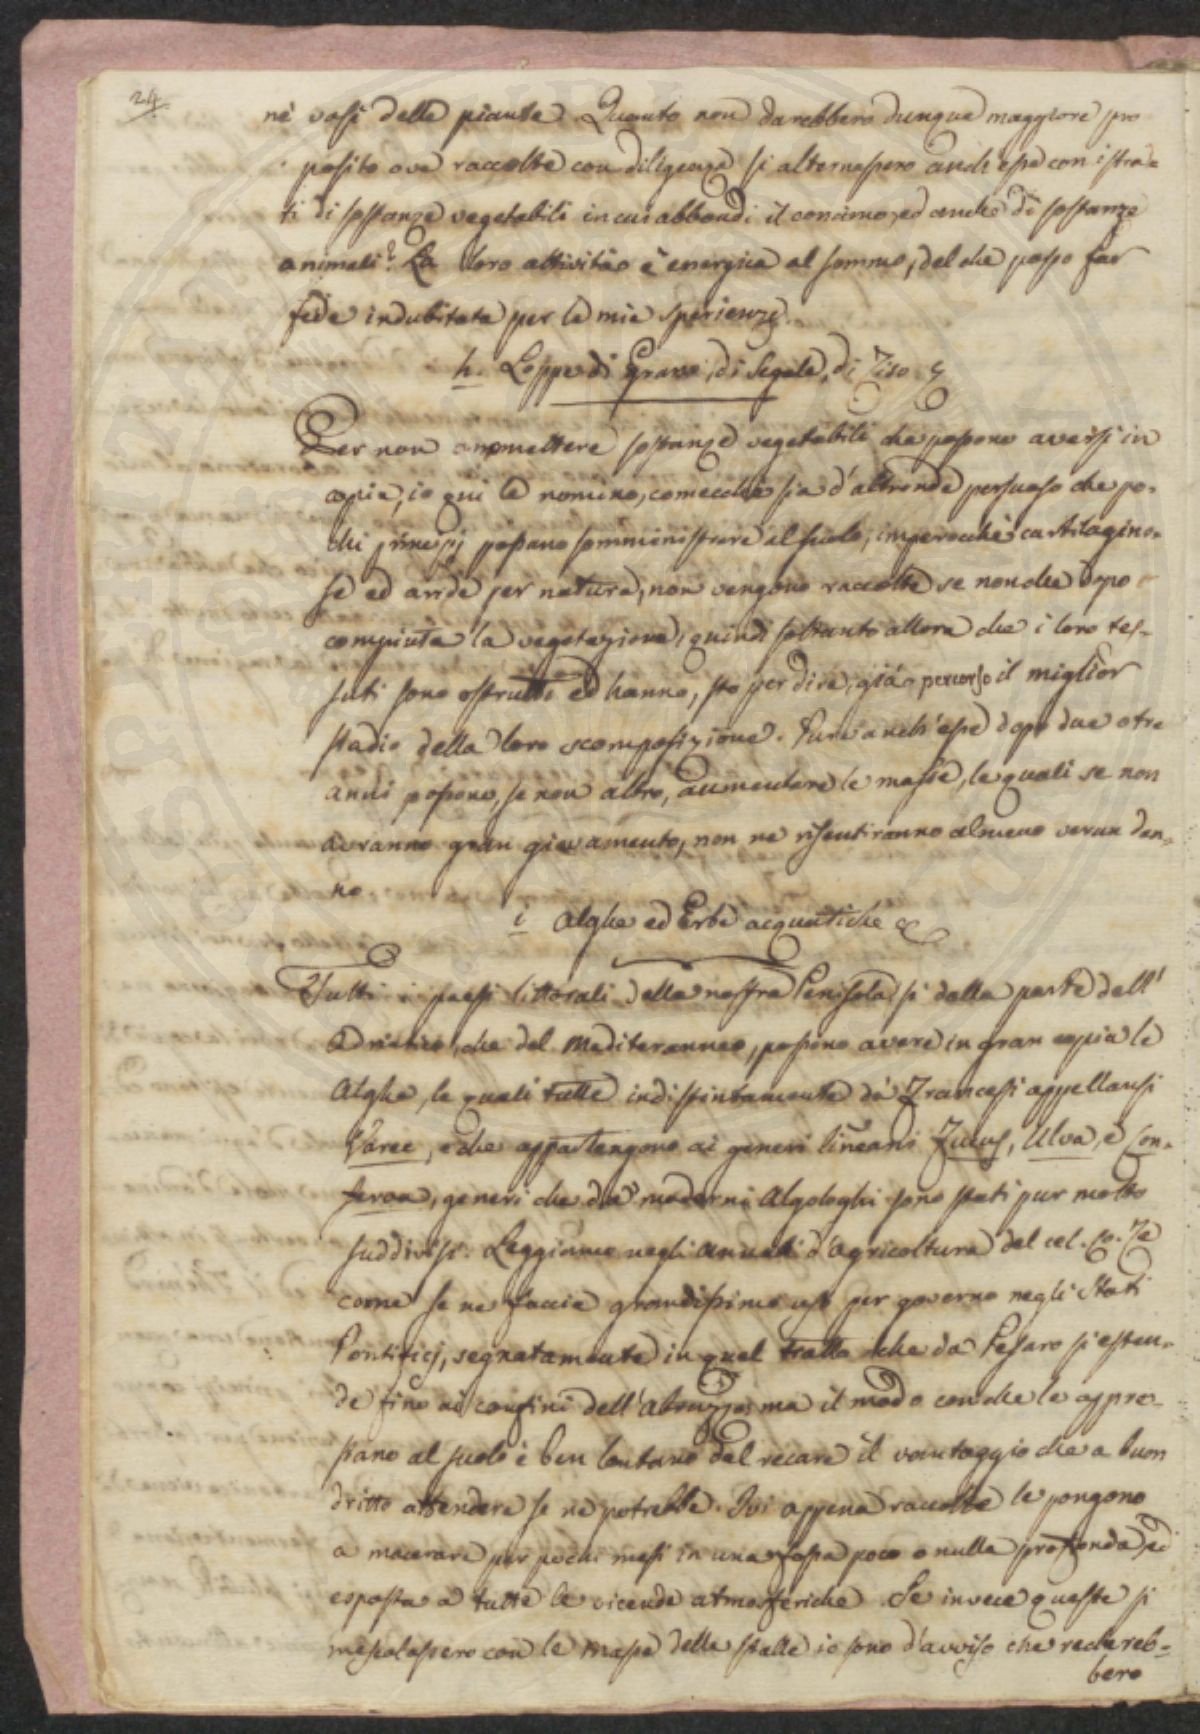 24.
nè vasi delle piante. Quanto non darebbero dunque maggiore pro
posito ove raccolte con diligenza si alternassero anch'esse con istra-
ti di sostanze vegetabili in cui abbondi il concimo, ed anche di sostanze
animali? La loro attività è energica al sommo, del che posso far
fede indubitata per le mie sperienze.
h. Loppe di Grano, di Segale, di Riso &
Per non ommettere sostanze vegetabili che possono aversi in
copia, io qui le nomino, comecchè sia d'altronde persuaso che po-
chi principj possano somministrare al suolo; imperocchè cartilagino-
se ed aride per natura, non vengono raccolte se non che dopo
compiuta la vegetazione, quindi soltanto allora che i loro tes-
suti sono ostrutti ed hanno, sto per dire, già percorso il miglior
stadio della loro scomposizione. Pure anch'esse dopo due o tre
anni possono, se non altro, aumentare le masse, le quali se non
avranno gran giovamento, non ne risentiranno almeno verun dan-
no.
i Alghe ed Erbe acquatiche &
Tutti i paesi littorali della nostra Penisola, sì dalla parte dell'
Adriatico, che del Mediteranneo, possono avere in gran copia le
Alghe, le quali tutte indistintamente da' Francesi appellansi
Varec, e che appartengono ai generi lineani Fucus, Ulva, e Con-
ferva, generi che da' moderni Algologhi sono stati pur molto
suddivisi. Leggiamo negli annali d'agricoltura del cel. Co. Re
come se ne faccia grandissimo uso per governo negli Stati
Pontificj, segnatamente in quel tratto che da Pesaro si esten-
de fino ai confini dell'Abruzzo; ma il modo con che le appre-
stano al suolo è ben lontano dal recare il vantaggio che a buon
dritto attendere se ne potrebbe. Ivi appena raccolte le pongono
a macerare per pochi mesi in una fossa poco o nulla profonda, ed
esposta a tutte le vicende atmosferiche. Se invece queste si
mescolassero con le masse delle stalle io sono d'avviso che rechereb-
bero